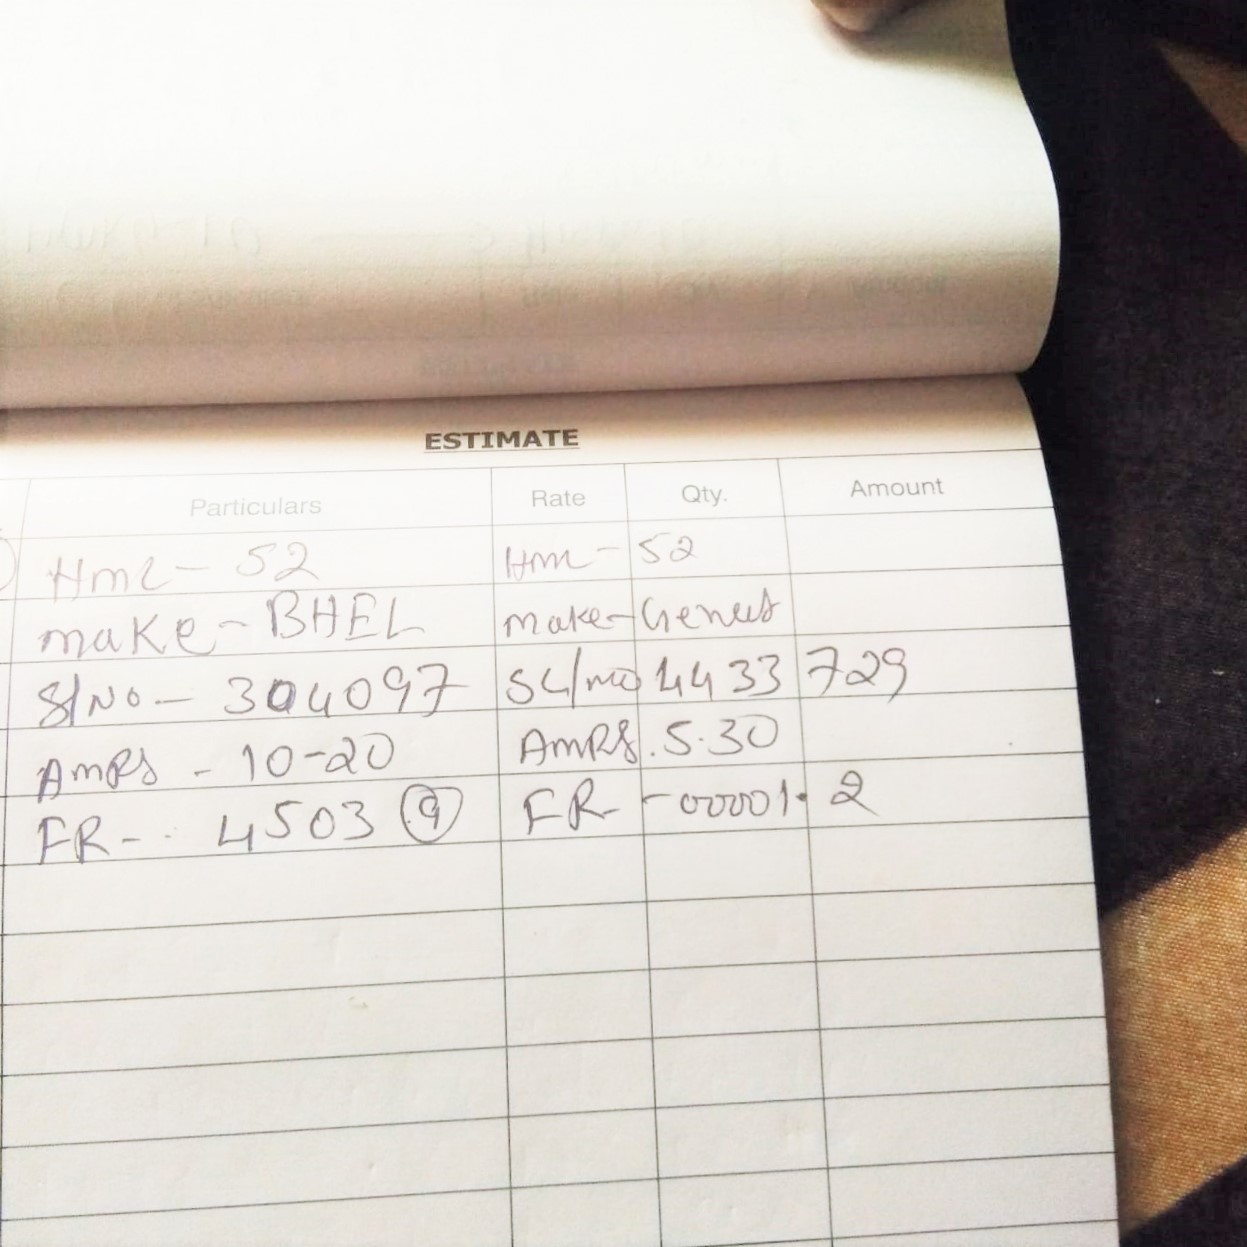 ESTIMATE
Particulars Rate Qty. Amount
Hml - 52 Hml - 52
make - BHEL make - Genus
S/No - 304097 SL/no 4433729
AmPs - 10-20 AmPs. 5.30
FR - 4503 (9) FR - 00001. 2